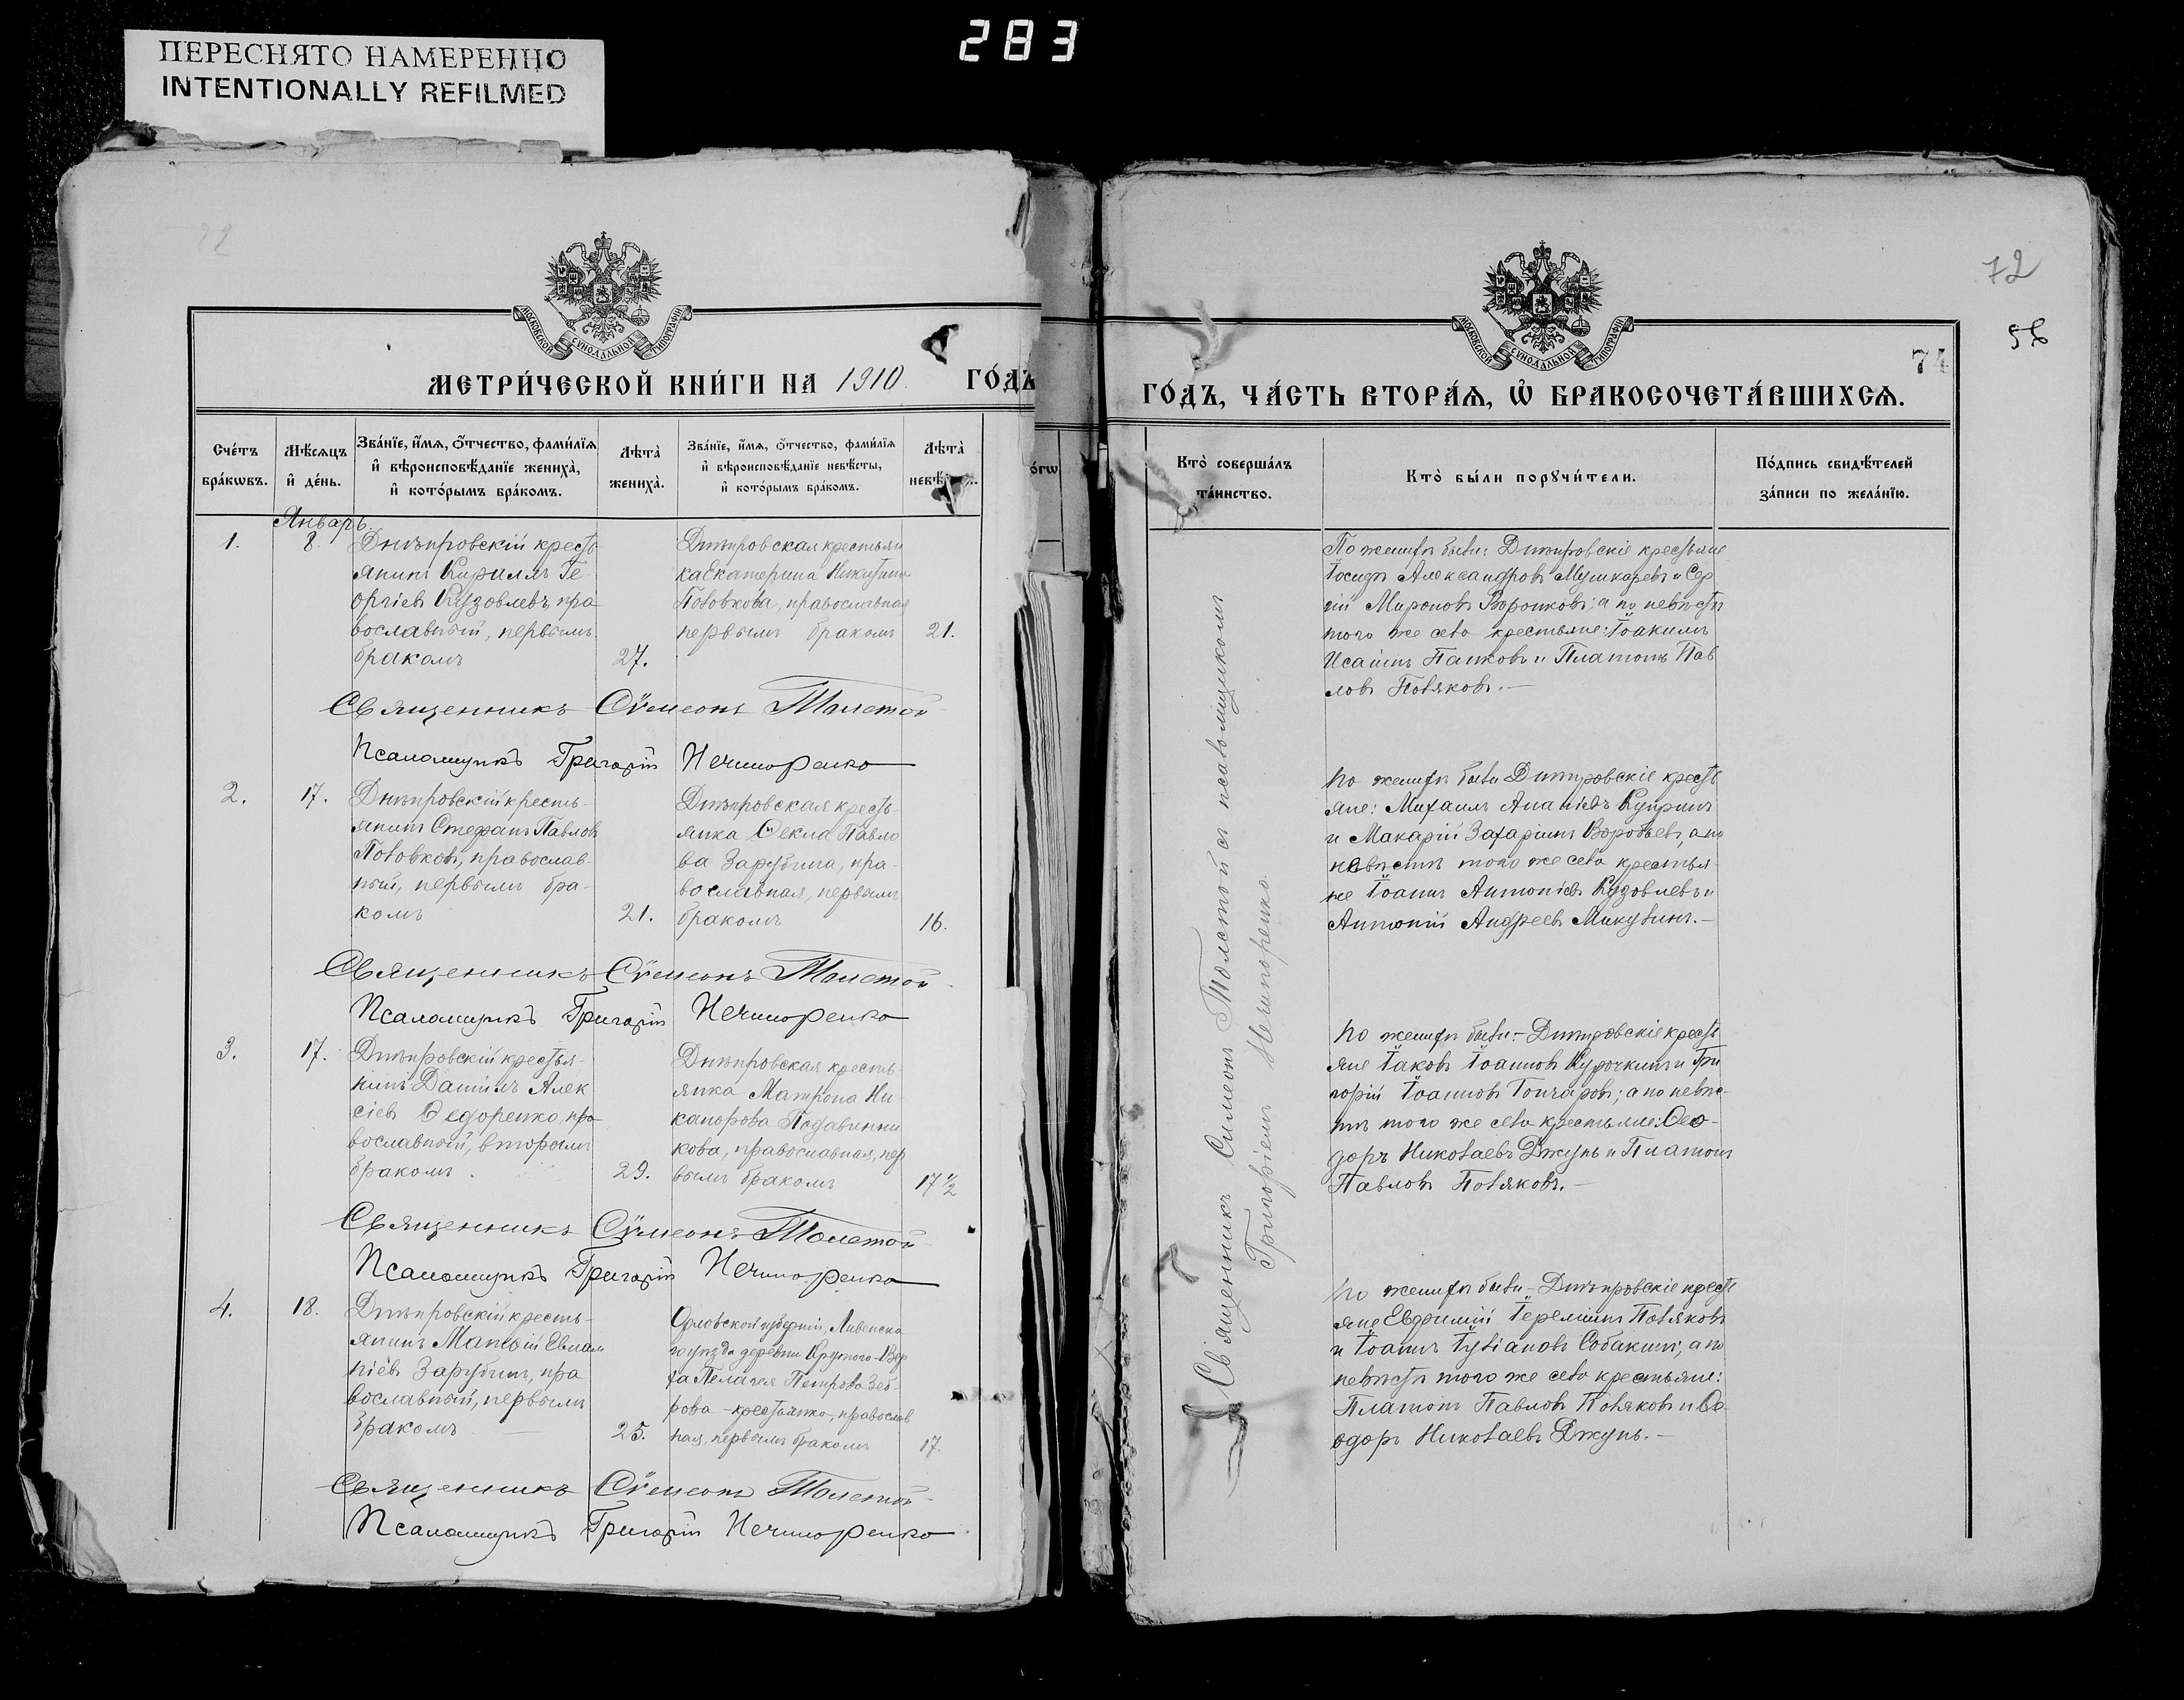 283
ПЕРЕСНЯТО НАМЕРЕННО
INTENTIONALLY REFILMED
МОСКОВСКОЙ СѴНОДАЛЬНОЙ ТИПОГРАФІИ
МЕТРИ́ЧЕСКОЙ КНИ́ГИ НА 1910. ГО́ДЪ
Сче́тъ бра́кωвъ.
Мѣ́сяцъ и҆ де́нь.
Зва́нїе, и҆́мѧ, ѻ҆́тчество, фами́лїѧ
и҆ вѣроисповѣ́данїе жениха̀,
и҆ кото́рымъ бра́комъ.
Лѣ́та̀ жениха̀.
Зва́нїе, и҆́мѧ, ѻ҆́тчество, фами́лїѧ
и҆ вѣроисповѣ́данїе невѣ́сты,
и҆ кото́рымъ бра́комъ.
Лѣ́та̀
Январь.
1.
8.
Днѣпровскій кресть
янинъ Кириллъ Ге-
оргіевъ Кузовлевъ, пра
вославный, первымъ
бракомъ
27.
Днѣпровская крестьян
ка Екатерина Никитина
Половкова, православная
первымъ бракомъ
21.
Священникъ Сѵмеонъ Толстой
Псаломщикъ Григорій Нечипоренко
2.
17.
Днѣпровскій кресть-
янинъ Стефанъ Павловъ
Половковъ, православ-
ный, первымъ бра-
комъ
21.
Днѣпровская кресть-
янка Ѳекла Павло
ва Зарубина, пра-
вославная, первымъ
бракомъ
16.
Священникъ Сѵмеонъ Толстой
Псаломщикъ Григорій Нечипоренко
3.
17.
Днѣпровскій крестья-
нинъ Даніилъ Алек
сіевъ Ѳедоренко, пра
вославный, вторымъ
бракомъ.
29.
Днѣпровская кресть-
янка Матрона Ни-
канорова
кова, православная, пер
вымъ бракомъ
17 1/2
Священникъ Сѵмеонъ Толстой
Псаломщикъ Григорій Нечипоренко
4.
18.
Днѣпровскій кресть-
янинъ Матѳій Евлам
піевъ Зарубинъ, пра
вославный, первымъ
бракомъ
25.
Орловской губерніи, Ливенска
го уѣзда деревни Крутого-Вер
ха Пелагея Петрова
крестьянка, православ
ная, первымъ бракомъ
17.
Священникъ Сѵмеонъ Толстой
Псаломщикъ Григорій Нечипоренко
72
56
74
МОСКОВСКОЙ СѴНОДАЛЬНОЙ ТИПОГРАФІИ
ГО́ДЪ, ЧА́СТЬ ВТОРА́Ѧ, Ѽ БРАКОСОЧЕТА́ВШИХСѦ.
Кто̀ соверша́лъ
та́инство.
Кто̀ бы́ли порꙋчи́тели.
По́дпись свидѣ́телей
за́писи по жела́нїю.
Священникъ Симеонъ Толстой съ псаломщикомъ
Григоріемъ Нечипоренко.
По женихѣ были: Днѣпровскіе крестьяне
Іосифъ Александровъ Мушкаревъ и Сер
гій Мироновъ Воронковъ; а по невѣстѣ
того же села крестьяне: Іоакимъ
Исаинъ Панковъ и Платонъ Пав
ловъ Поляковъ.—
По женихѣ были Днѣпровскіе кресть
яне: Михаилъ Ананіевъ Купринъ
и Макарій Захаріинъ Воробьевъ, а по
невѣстѣ того же села крестья-
не Іоаннъ Антоніевъ Кузовлевъ и
Антоній Андреевъ Микулинъ.—
По женихѣ были:- Днѣпровскіе кресть
яне Іаковъ Іоанновъ Курочкинъ и Гри
горій Іоанновъ Гончаровъ; а по невѣс-
тѣ того же села крестьяне: Ѳео-
доръ Николаевъ Джунь и Платонъ
Павловъ Поляковъ.—
По женихѣ были- Днѣпровскіе кресть
яне Евфимій Іереміинъ Поляковъ
и Іоаннъ Іуліановъ Собакинъ, а по
невѣстѣ того же села крестьяне:
Платонъ Павловъ Поляковъ и Ѳе
одоръ Николаевъ Джунь.—